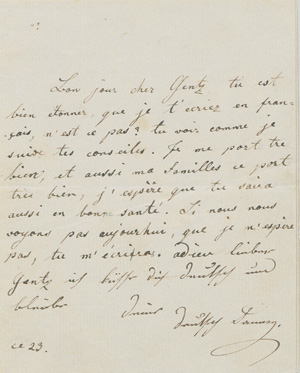 Bon jour cher Gentz tu est
bien étonner, que je t'écriez en fran-
çais, n'est ce pas? tu voir comme je
suive tes conseiles. Je me port tre
bien, et aussi ma familles ce port
tres bien, j'espére que tu saira
aussi en bonne santé. Si nous nous
voyons pas aujourhui, que je n'espère
pas, tu m'écrifras. adieu lieber
Gentz ich küsse dich deutsch und
bleibe deine
deutsch Fanny.
ce 23.